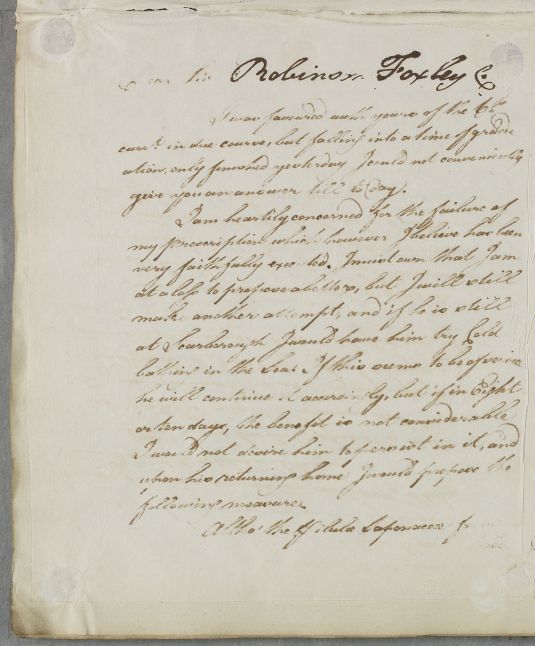 Dear Sir Robinson Foxley Co.
I was favoured with yours of the 6th
curr.t in due course, but falling into a time of gradu
ation, only finished yesterday I could not conveniently
give you an answer till to day.
I am heartily concerned for the failure of
my prescription which however I believe has been
very faithfully executed. I must own that I am
at a loss to propose a better, but I will still
make another attempt, and if he is still
at Scarborough I would have him try Cold
bathing in the Sea: If this seems to be of service
he will continue it accordingly, but if in Eight
or ten days, the benefit is not considerable
I would not desire him to persist in it, and
upon his returning home I would propose the
following measures
Altho' the Pilulae Saponaceae